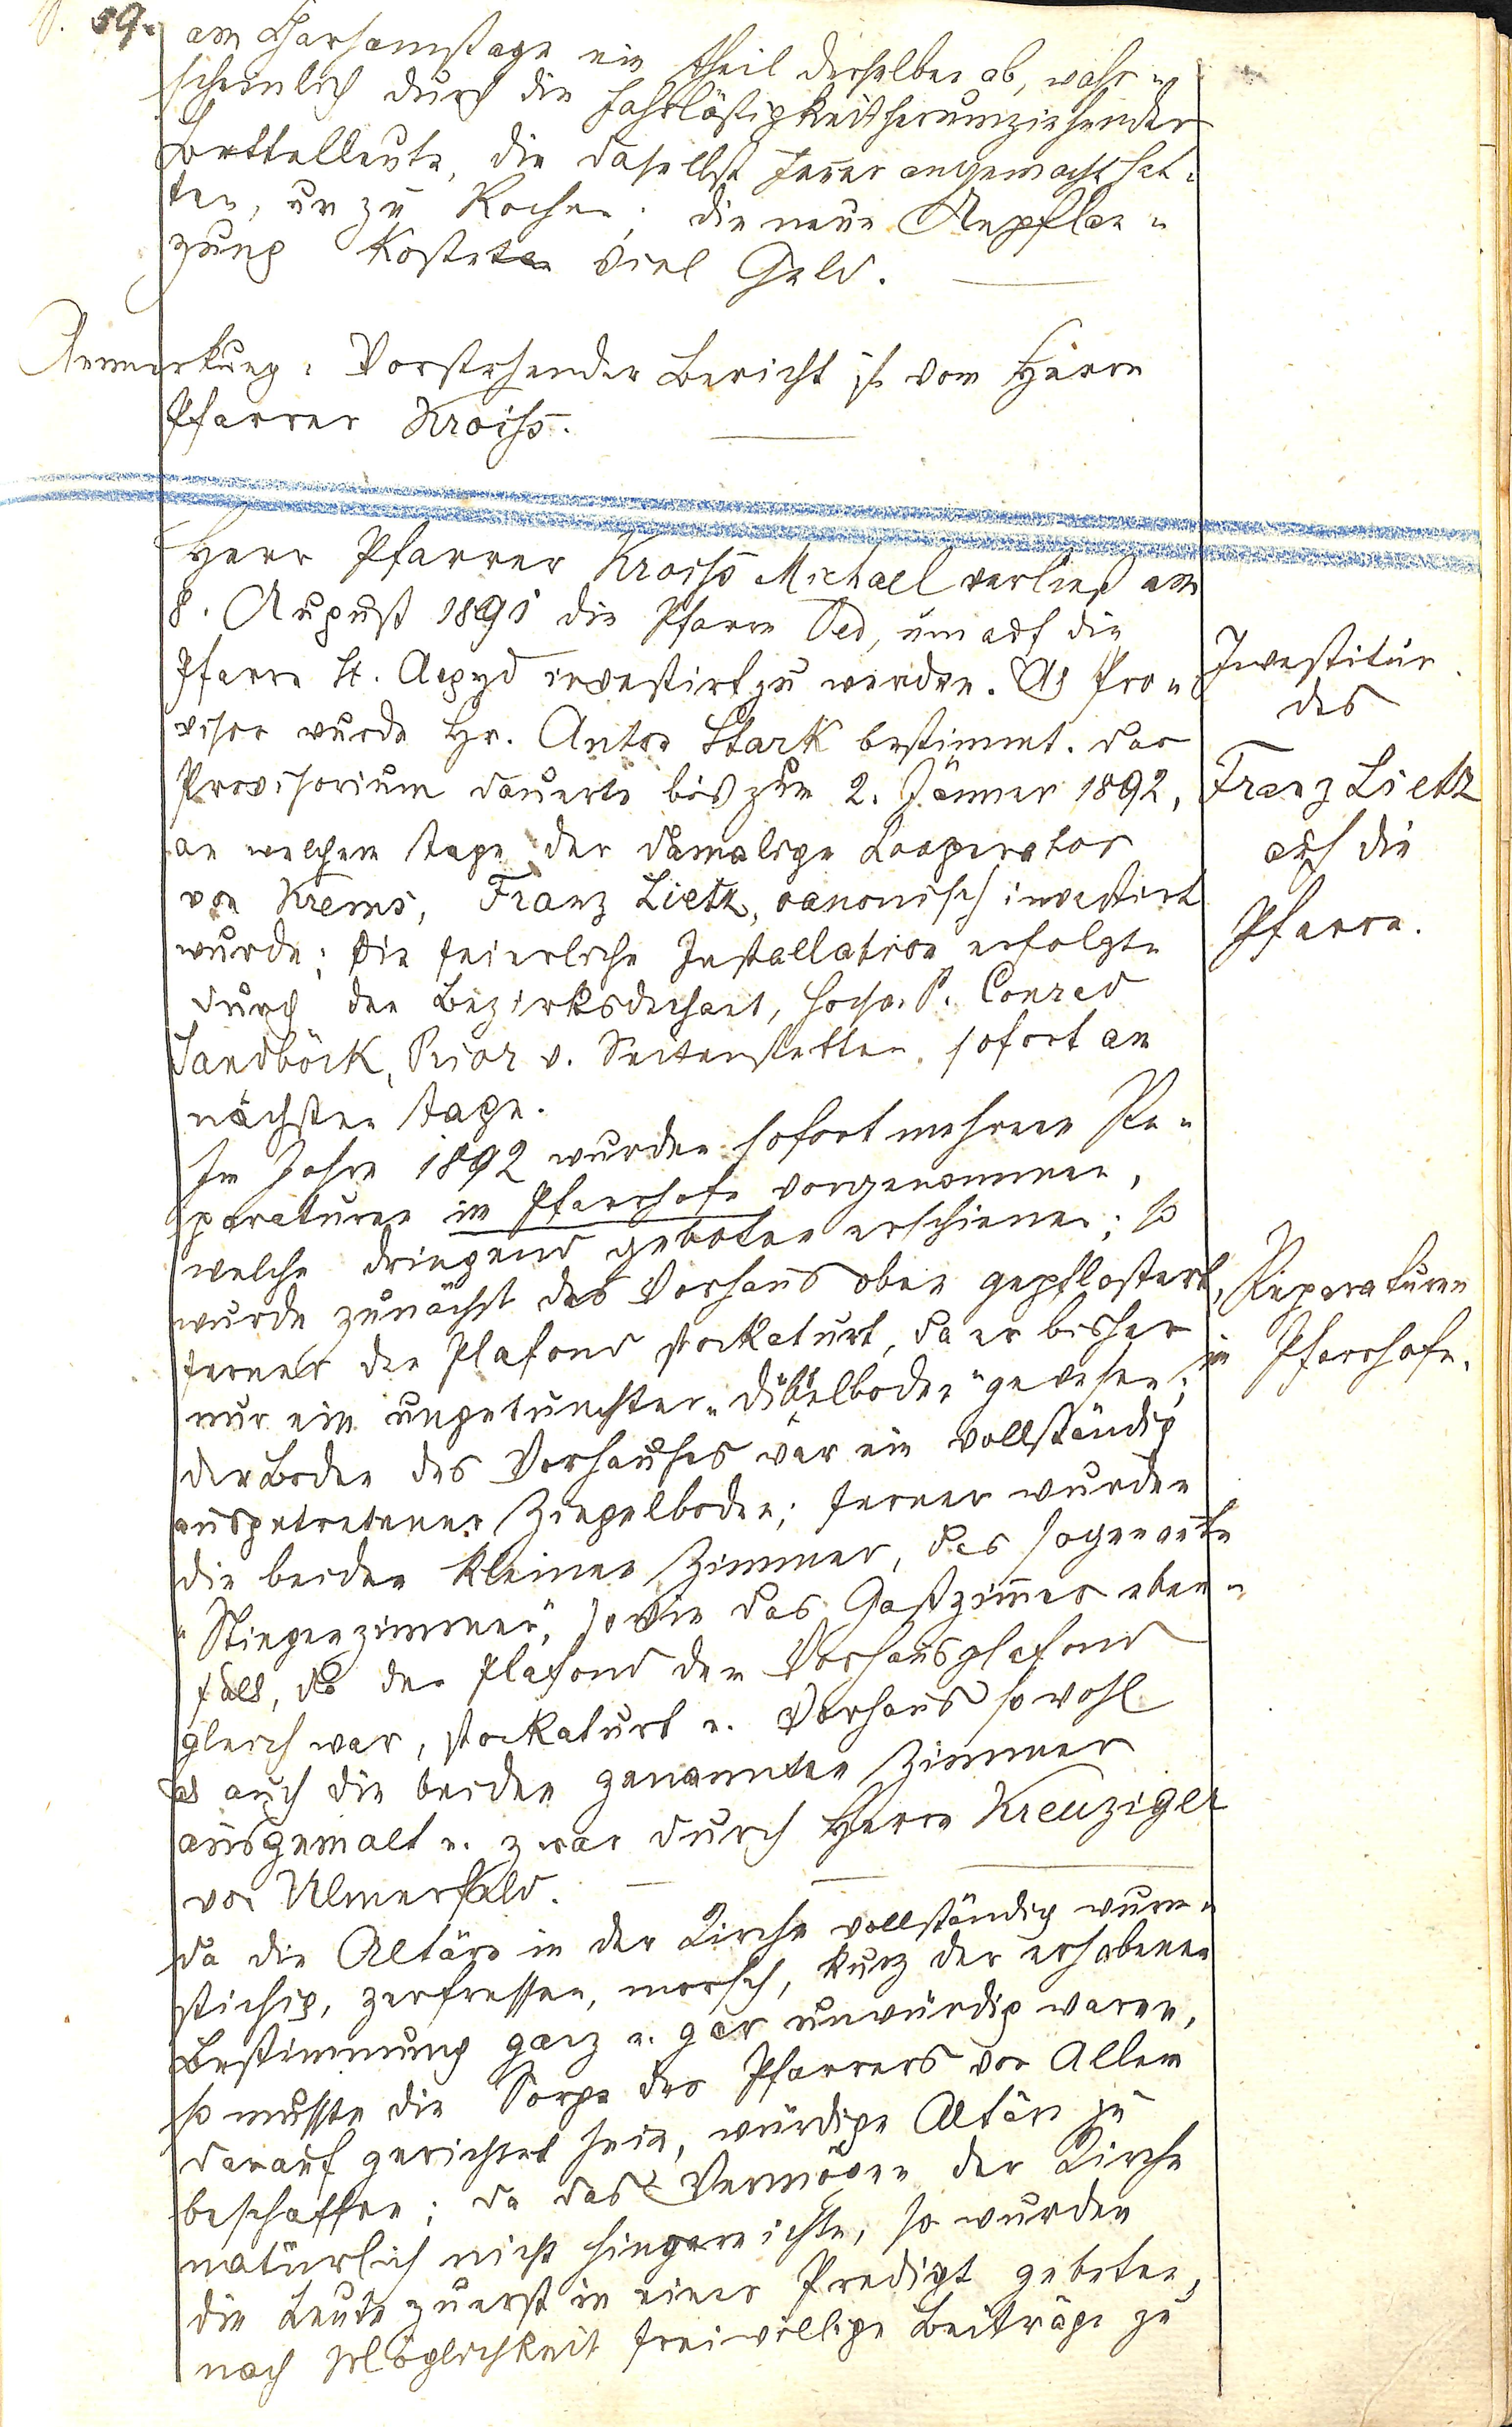 S. 59.
am Charsamstage ein Theil derselben ab, wahr-
scheinlich durch die Fahrlässigkeit herumziehender
Bettelleute, die daselbst Feuer angemacht hat-
ten, um zu Kochen; die neue Anpflan-
zung kostete viel Geld.
Anmerkung: Vorstehender Bericht ist vom Herrn
Pfarrer Kroiss.
Herr Pfarrer Kroiss Michael verließ am
8. August 1891 die Pfarre Oed, um auf die
Pfarre St. Aegyd investirt zu werden. Als Pro-
visor wurde Hr. Anton Stark bestimmt. Das
Provisorium dauerte bis zum 2. Jänner 1892,
an welchem Tage der damalige Cooperator
von Krems, Franz Lietz, canonisch investirt
wurde; die feierliche Installation erfolgte
durch den Bezirksdechant, Hochw. P. Conrad
Sandböck, Prior v. Seitenstetten, sofort am
nächsten Tage.
Investitur
des
Franz Lietz
auf die
Pfarre.
Im Jahre 1892 wurden sofort mehrere Re-
paraturen im Pfarrhofe vorgenommen,
welche dringend geboten erschienen; so
wurde zunächst das Vorhaus oben gepflastert,
ferner der Plafond stockaturt, da er bisher
nur ein ungetünchter "Dübelboden" gewesen;
der Boden des Vorhauses war ein vollständig
ausgetretener Ziegelboden; ferner wurden
die beiden kleinen Zimmer, das sogenante
"Stiegenzimmer", sowie das Gastzimmer eben-
falls, da der Plafond dem Vorhausplafond
gleich war, stockaturt u. Vorhaus sowohl
als auch die beiden genannten Zimmer
ausgemalt u. zwar durch Herrn Kreuziger
von Ulmerfeld.
Reparaturen
im Pfarrhofe.
Da die Altäre in der Kirche vollständig wurm-
stichig, zerfressen, morsch, kurz der erhabenen
Bestimmung ganz u. gar unwürdig waren,
so musste die Sorge des Pfarrers vor Allem
darauf gerichtet sein, würdige Altäre zu
beschaffen; da das Vermögen der Kirche
natürlich nicht hingereichte, so wurden
die Leute zuerst in einer Predigt gebeten,
nach Möglichkeit freiwillige Beiträge zu